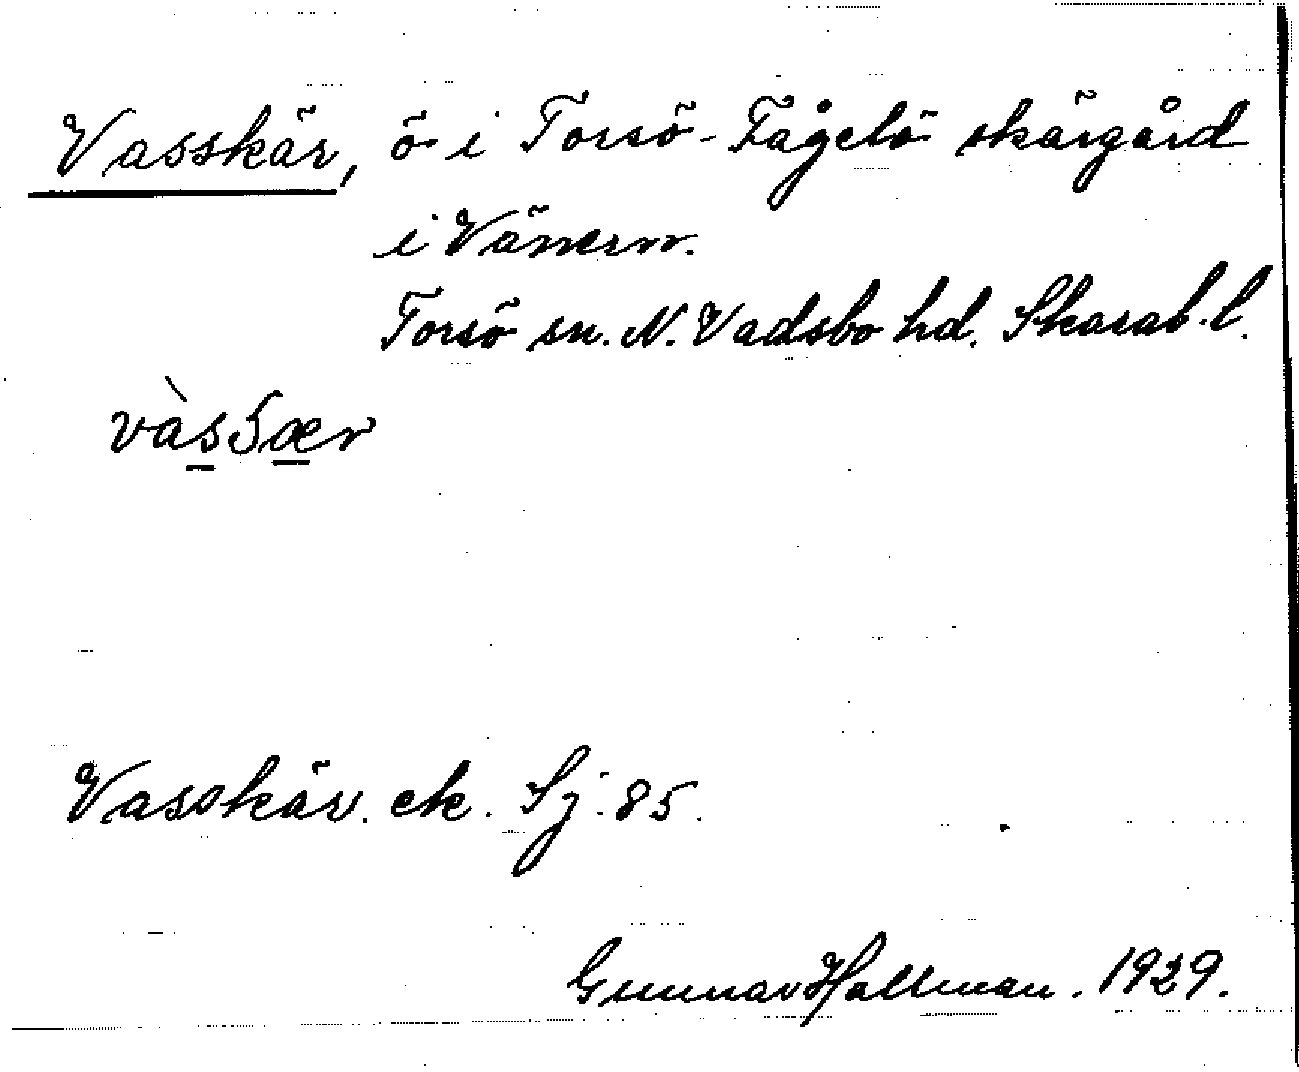 Vasskär, ö i Torsö-Fågelö skärgård
i Vänern.
Torsö sn. N. Vadsbo hd. Skarab. l.
vàsʃær
Vasskär. ek. Sj. 85.
Gunnar Hallman. 1929.